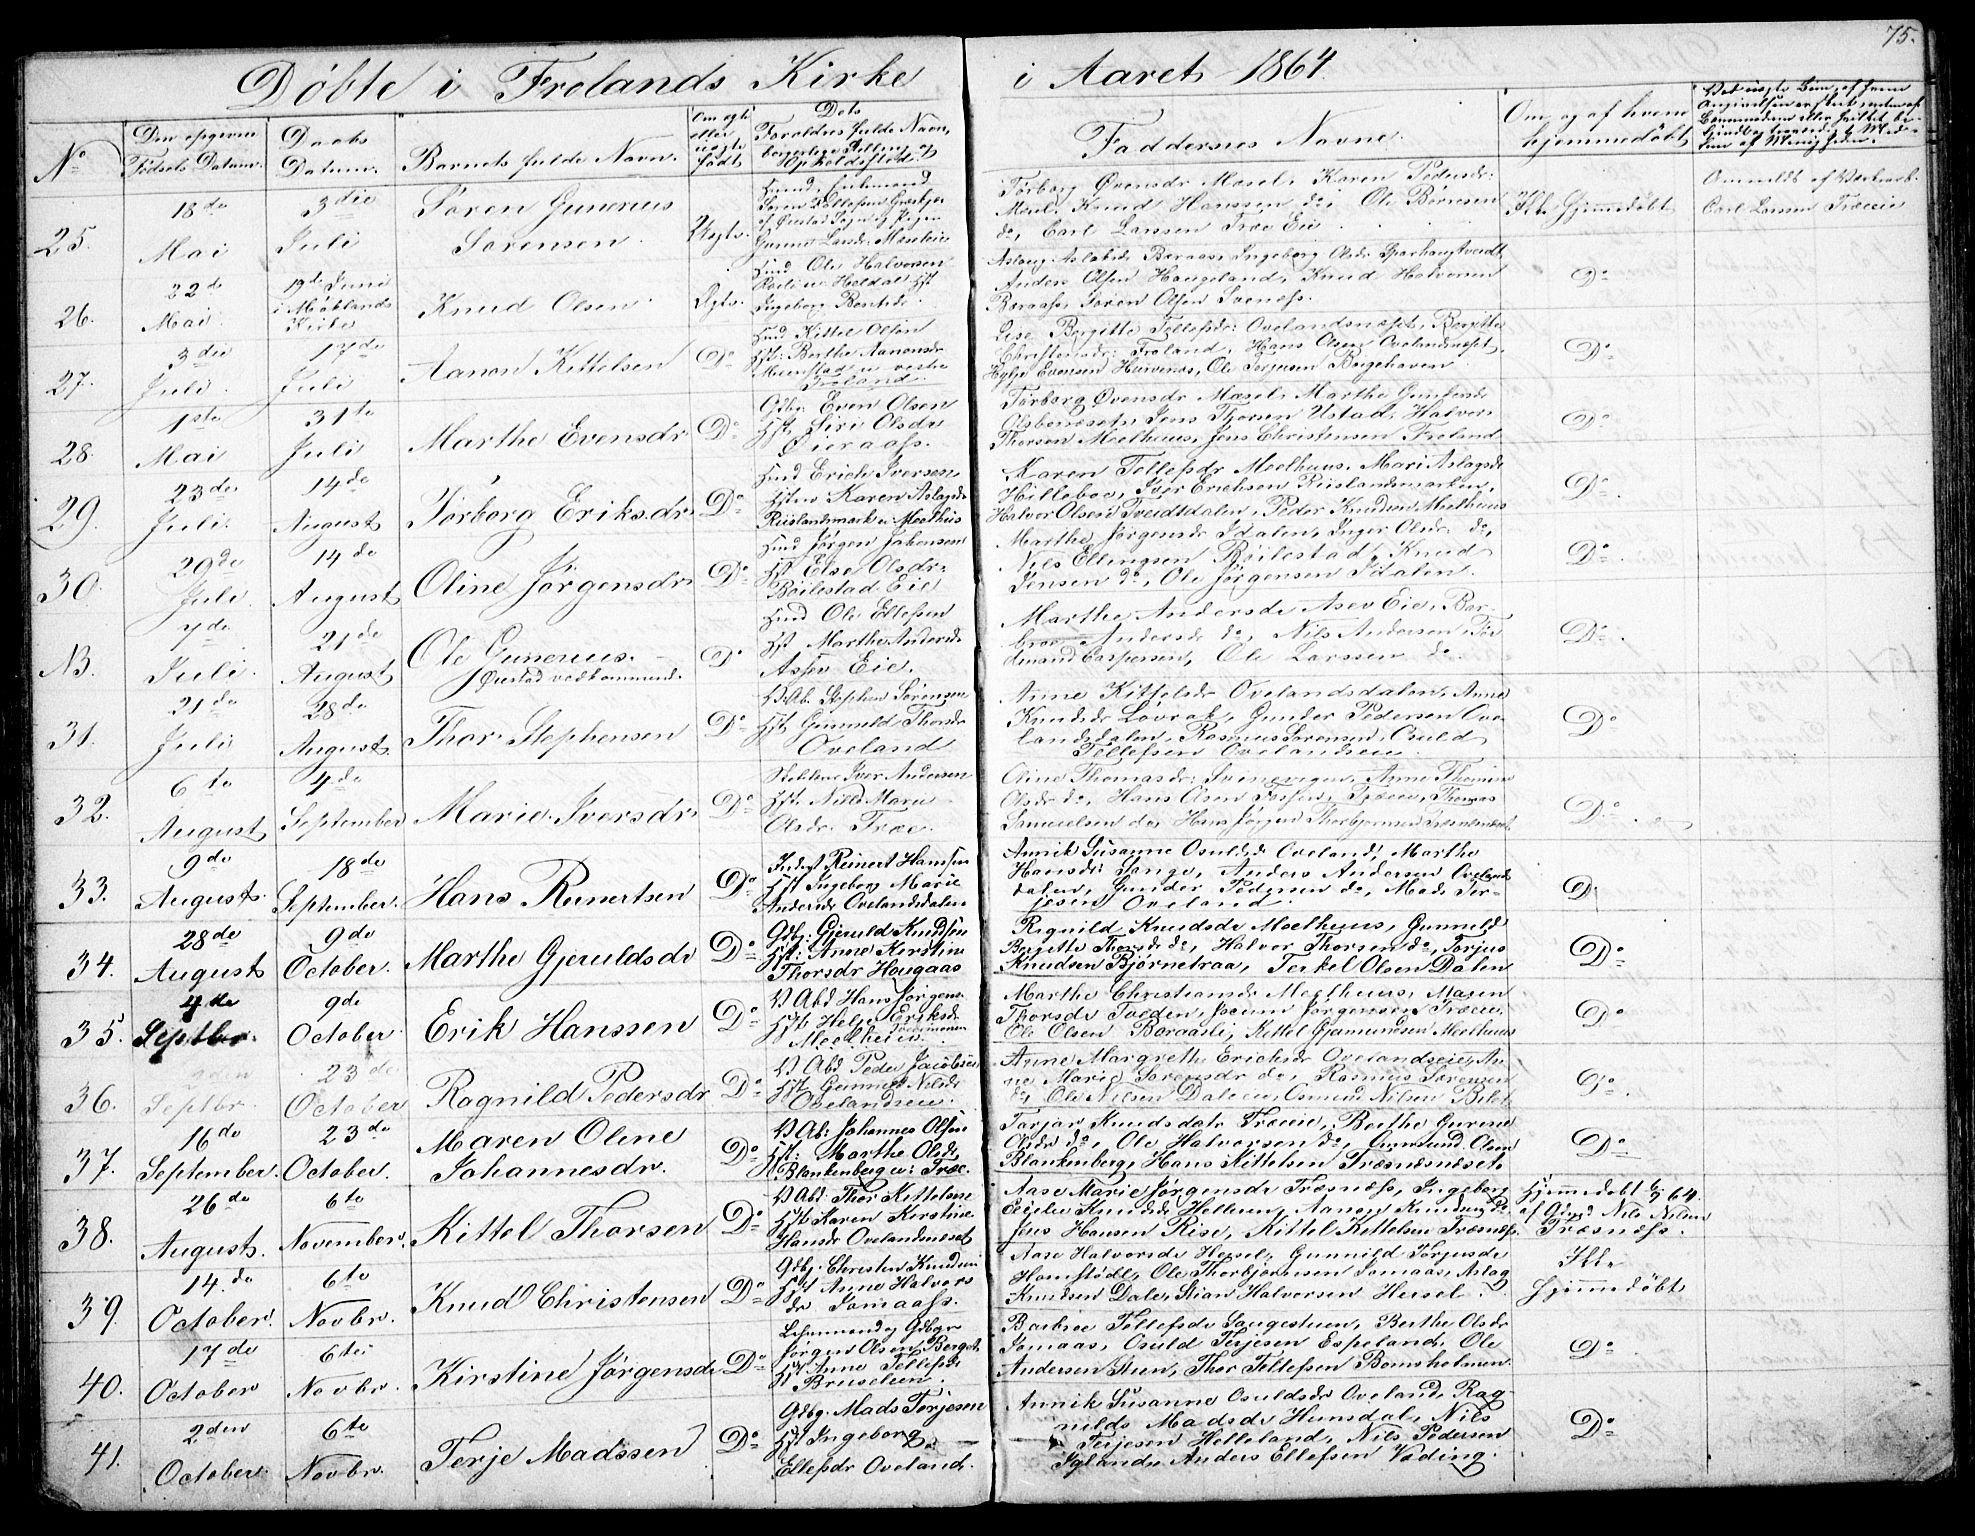 75.
Döbte i Frolands Kirke i Aaret 1864.
No
Den opgivne Födsels Datum.
Daabs Datum.
Barnets fulde Navn.
Om egte eller uegte födt.
Dets Forældres fulde Navn, borgerlige Stilling og Opholdssted
Faddernes Navne.
Om og af hvem hjemmedöbt
25.
18de Mai
3die Juli
Sören Gunerius Sörensen.
Uegte.
Törborg Övensdr Mæsel, Karen Pedersdr:
Mæsel, Knud Hanssen do, Ole Börresen
do, Carl Larssen Træ Eie
Ikke Hjemmedöbt
Carl Larssen Træeie
26.
22de Mai.
19de Juni i Möklands Kirke
Knud Olsen
Egte.
Hmd Ole Halvorsen
Ingeborg
Anders Olsen Haugeland, Knud Halvorsen
Beraas, Sören Olsen Svenefs.
Do
27.
3die Juli.
17de Juli
Aanon Kittelsen
Do
Hmd Kittel Olsen
Hst: Berthe Aanonsdr
Froland.
Lise Bergitte Tellefsdr: Ovelandsnæset, Bergitte
Christensdr: Froland, Hans Olsen Ovelandsnæset,
Evensen, Ole Torjusen Bögehaven
Do
28.
1ste Mai
31te Juli
Marthe Evensdr
Do
Gdbr. Even Olsen
Hst. Siri Olsdr
Öieraas.
Törborg Övensdr Mæsel, Marthe
Jens Thorsen Ustad, Halvor
Thorsen Moelhuus, Jens Christensen Froland
Do
29.
23de Juli.
14de August
Törborg Eriksdr
Do
Hmd Erich Iversen,
Hstru Karen Aslagsdr
Riislandsmark u. Moelhus
Karen Tellefsdr Moelhuus, Mari Aslagsdr
Hilleboe, Iver Erichsen Riislandsmarken,
Halvor Olsen Tveidtdalen, Peder Knudsen Moelhuus
Do
30.
29de Juli
14de August
Oline Jörgensdr
Do
Hmd Jörgen Johensen
Hst Else Olsdr:
Böilestad Eie
Marthe Jörgensdr Idalen, Inger Olsdr do,
Nils Ellingsen Böilestad, Knud
Jensen do, Ole Jörgensen Idalen.
Do
NB.
7de Juli
21de August
Ole Gunerius.
Öiestad vedkommende.
Do
Hmd Ole Ellefsen
Hst, Marthe Andersdr
Assev Eie.
Marthe Andersdr Asev Eie, Bar-
broe Andersdr do, Nils Andersen, Fer
dinand Caspersen, Ole Larssen do
Do
31.
21de Juli
28de August.
Thor Stephensen
Do
Stephen Sörensen
Hst Gunnild Thorsdr
Oveland
Anne Kittelsdr Ovelandsdalen, Anne
Knudsdr Lövrak, Gunder Pedersen Ove-
landsdalen, Rasmus Sörensen, Osuld
Tellefsen Ovelandseie.
Do
32.
6te August
4de September
Marie Iversdr
Do
Iver Andersen
Hst. Nille Marie
Olsdr. Træe.
Oline Thomasdr: Svinevigen, Anne Thomine
Olsdr do, Hans Olsen Træeie, Thomas
Samuelsen do, Hans Jörgen Thorbjörnsen
Do
33.
9de August
18de September.
Hans Reinertsen
Do
Inderst Reinert Hansen
Hst Ingeborg Marie
Andersdr Ovelandsdalen
Annik Susanne Osuldsdr Oveland, Marthe
Hansdr: Songe, Anders Andersen Ovelands
dalen, Gunder Pedersen do, Mads Ter-
jesen Oveland.
Do
34.
28de August
9de October.
Marthe Gjeruldsdr
Do
Gdbg: Gjeruld Knudsen
Hst: Anne Kirstine
Thorsdr Hougaas
Rignild Knudsdr Moelhuus, Gunnild
Bergitte Thorsdr do, Halvor Thorsen do, Torjus
Knudsen Bjørnetraa, Terkel Olsen Dalen
Do
35.
4de Septbr.
9de October
Erik Hanssen
Do
Hans Jörgens-
Hst Helje Eriksdr
Moelheien
Marthe Christiansdr Moelhuus, Maren
Thorsdr Tveden, Joeim Jörgensen Træeie,
Ole Olsen Baraaslie, Kittel Gjamundsen Moelhuus
Do
36.
Septbr.
23de October
Ragnild Pedersdr
Do
Peder Jacobsen
Hst Gunnild Nilsdr
Ovelandseie.
Anne Margrethe Erichsdr Ovelandseie, An-
ne Marie Sörensdr do, Rasmus Sörensen
do, Ole Nilsen Dalen, Osmund Nilsen
Do
37.
16de September.
23de October.
Maren Oline Johannesdr.
Do
Johannes Olsen
Hst: Marthe Olsdr
Blankenberg u: Træe.
Tarjær Knudsdatr Træeie, Berthe Gurine
Olsdr do, Ole Halvorsen do, Gunsund Olsen
Blankenberg, Hans Kittelsen Træsnæsnæset.
Do
38.
26de August.
6te November.
Kittel Thorsen
Do
Thor Kittelsen
Hst Karen Kirstine
Hansdr Ovelandsnæset
Aase Marie Jörgensdr Træsnæss, Ingeborg
Cecilie Knudsdr Helleren, Aanon Knudsen do
Jens Hansen Rise, Kittel Kittelsen Træsnæss.
Hjemmedöbt
af Gdmd Nils Nilsen
Træsnæss.
39.
14de October.
6te Novbr.
Knud Christensen
Do
Gdbg. Christen Knudsen
Hst Anne Halvors
dr Jomaass.
Aase Halvorsdr Heesel, Gunnild Torjusdr
Homstödt, Ole Thorbjörnsen Jomaas, Aslag
Knudsen Dale, Stian Halvorsen Heesel.
Ikke Hjemmedöbt
40.
17de October
6te Novbr.
Kirstine Jörgensdr
Do
Lehnsmand og Gdbgr
Jörgen Olsen Berget
Hst Anne Tellefsdr
Bruseleien.
Barbroe Tellefsdr Songesteien, Berthe Olsdr
Jomaas, Osuld Terjesen Espeland, Ole
Andersen Steen, Thor Tellefsen Bomsholmen.
Do
41.
2den October
6te Novbr.
Terje Madssen
Do
Gdbg. Mads Terjesen
Hst Ingeborg
Ellefsdr Oveland.
Annik Susanne Osuldsdr Oveland, Rag-
nilde Madsdr Hunsdal, Nils
Terjesen Helleland, Nils Pedersen
Iglandr, Anders Ellefsen Vading.
Do